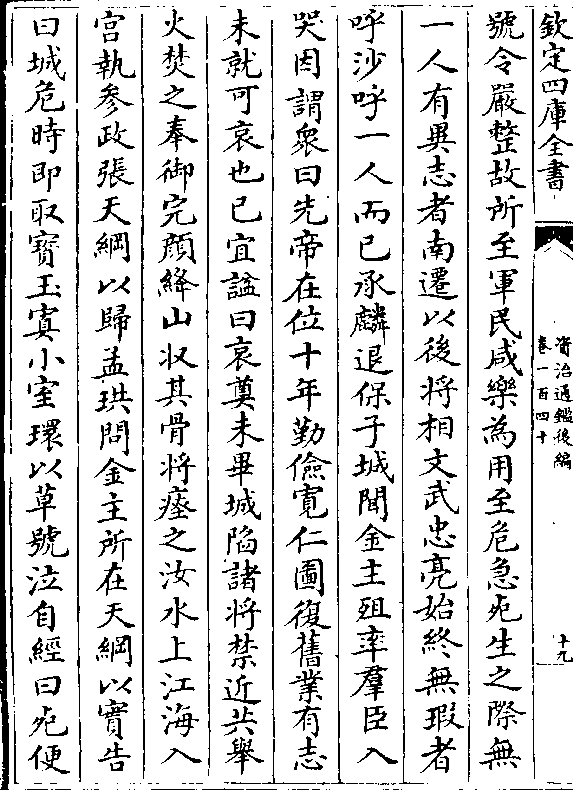 欽定四庫全書
資治通鑑後編
卷一百四十
十九
號令嚴整故所至軍民咸樂為用至危急死生之際無
一人有異志者南遷以後將相文武忠亮始終無瑕者
呼沙呼一人而已承麟退保子城聞金主殂率羣臣入
哭因謂衆曰先帝在位十年勤儉寛仁圖復舊業有志
未就可哀也已宜諡曰哀奠未畢城陷諸將禁近共舉
火焚之奉御完顏絳山收其骨將瘞之汝水上江海入
宮執參政張天綱以歸孟珙問金主所在天綱以實告
曰城危時即取寶玉寘小室環以草號泣自經曰死便